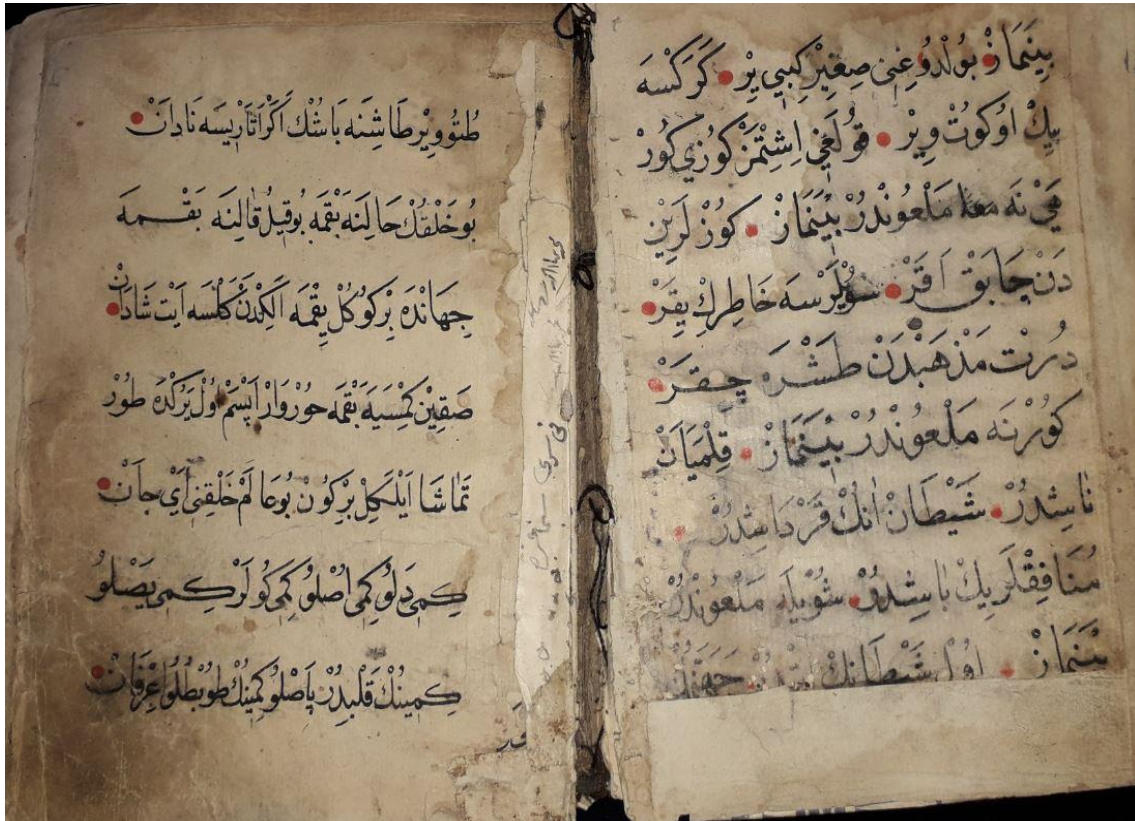 بِينَمَازْ بُولْدُوغِنِي صِغِيرْ كِيبِي يِرْ كَرَكْسَه
بِيكْ اوُكُوتْ وِيرْ قُولَغِي اِشِتْمَزْ كوُزِي كوُرْ
مَلْعُوندُرْ بِينَمَازْ كوُزْلَرِينْ
دَنْ چَابَقْ اَقَرْ سوُيْلَرْسَه خَاطِركْ يِقَرْ
دُرْت مَذْهَبْدَنْ طَشْرَه چِقَرْ
كوُرْنَه مَلْعُونْدُرْ بِينَمَازْ قِلْمَيَانْ
نَاسِدُرْ شَيْطَانْ اَنِكْ قَرْدَاشِدُرْ
مُنَافِقْلَرِيكْ بَاشِدُرْ شُويْلَه مَلْعُونْدُرْ
بِينَمَازْ اوُلْ شَيْطَانِكْ
طُتُووِيرْ طَاشِنَه بَاشُكْ اَكَرْ اَتَارِيسَه نَادَانْ
بُو خَلْقُكْ حَالِنَه بَقْمَه بُو قِيلُ قَالِنَه بَقْمَه
جِهَانْدَه بِرْ كوُكُلْ يِقْمَه اَلِكْدَنْ كَلُسَه اَيْت شَادَانْ
صَقِينْ كِمْسَيَه بَقْمَه حوُرْ وَارْ اَپْسَمْ اوُلْ يَرُكْدَه طوُرْ
تَمَاشَا اَيْلَكِلْ بِرْكوُنْ بُو عَالَمْ خَلْقِنِي اَيْ جَانْ
كِمِي دَلُو كِمِي اُصْلُو كِمِي كوُلَرْ كِمِي يَصْلُو
كِمِينُكْ قَلْبِدُرْ پَاصْلُو كِمِينُكْ طوُپْطُلُو عِرْفَانْ